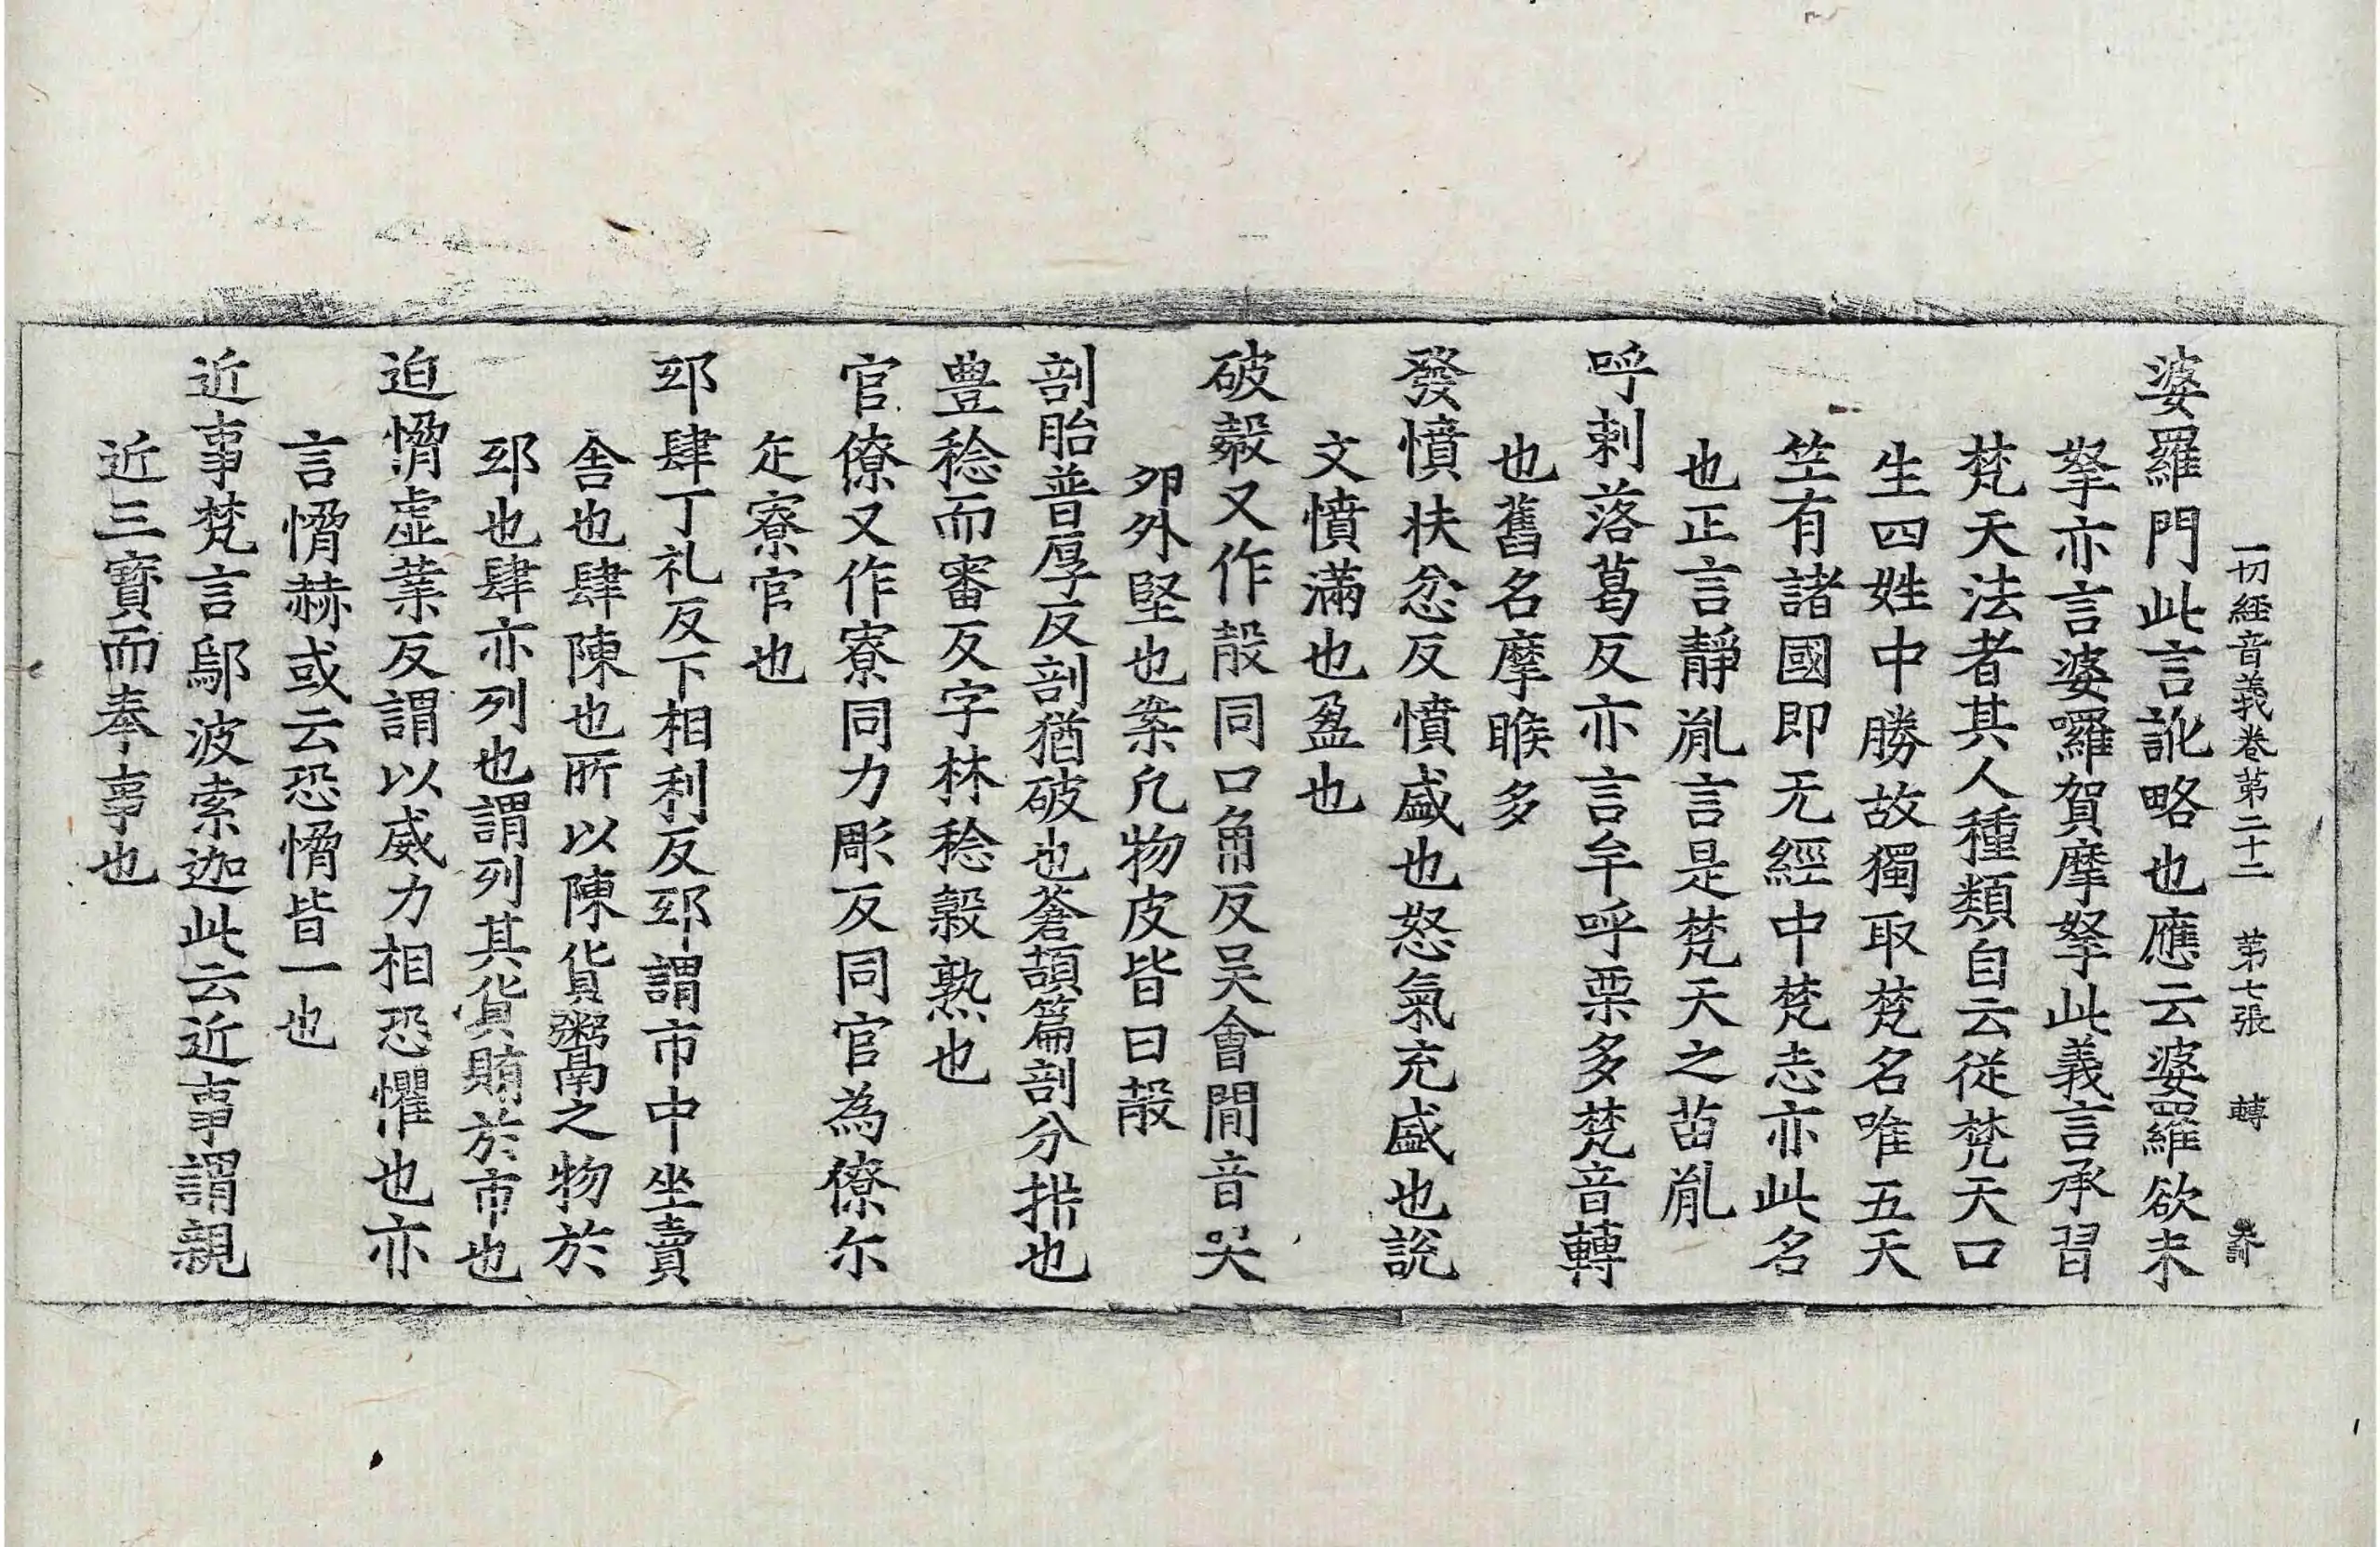 一切經音義卷第二十二　第七張　轉
婆羅門此言訛略也應云婆羅欲末
拏亦言婆囉賀摩拏此義言承習
梵天法者其人種類自云從梵天口
生四姓中勝故獨取梵名唯五天
竺有諸國即无經中梵志亦此名
也正言靜胤言是梵天之苗胤
呼剌落葛反亦言牟呼栗多梵音轉
也舊名摩睺多
發憤扶忿反憤盛也怒氣充盛也說
文憤滿也盈也
破㲉又作㱿同口角反吴會間音哭
卵外堅也案凡物皮皆曰㱿
剖胎普厚反剖猶破也蒼頡篇剖分㭊也
豊稔而審反字林稔穀熟也
官僚又作寮同力彫反同官為僚尓
疋寮官也
邸肆丁礼反下相利反邸謂市中坐賣
舍也肆陳也所以陳貨鬻之物於
邸也肆亦列也謂列其貨賄於市也
迫愶虛業反謂以威力相恐懼也亦
言愶赫或云恐愶皆一也
近事梵言鄔波索迦此云近事謂親
近三寳而奉事也